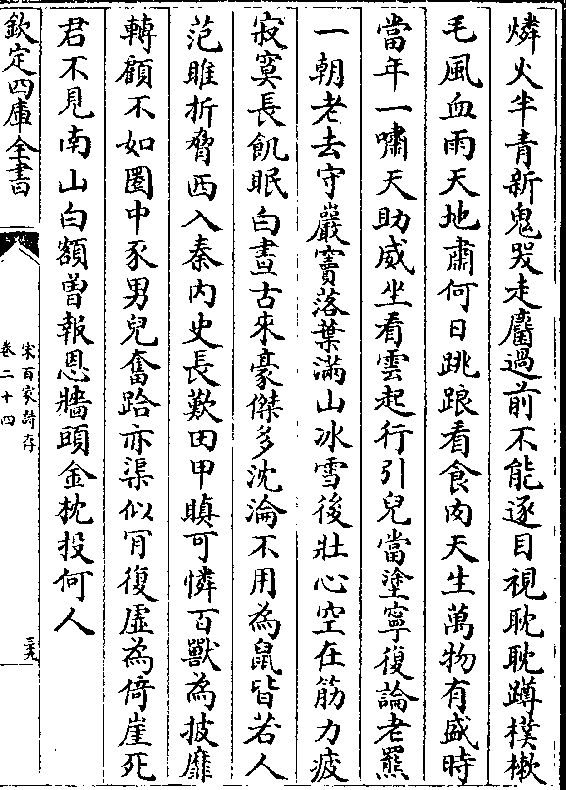 燐火半青新鬼哭走麕過前不能逐目視耽耽蹲樸樕
毛風血雨天地肅何日跳踉看食肉天生萬物有盛時
當年一嘯天助威坐看雲起行引兒當塗寧復論老羆
一朝老去守巖竇落葉滿山冰雪後壯心空在筋力疲
寂寞長飢眠白晝古來豪傑多沈淪不用為鼠皆若人
范雎折脅西入秦内史長歎田甲瞋可憐百獸為披靡
轉顧不如圈中豕男兒奮跲亦渠似肎復虛為倚崖死
君不見南山白額曽報恩牆頭金枕投何人
欽定四庫全書
宋百家詩存
卷二十四
三九